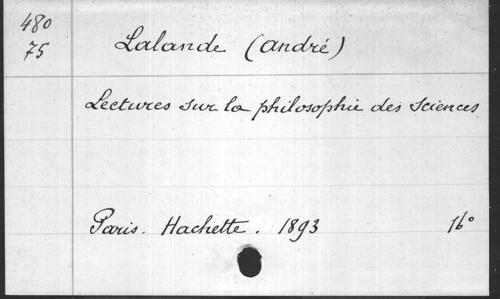 480
75
Lalande (André)
Lectures sur la philosophie des sciences
Paris. Hachette. 1893 16°